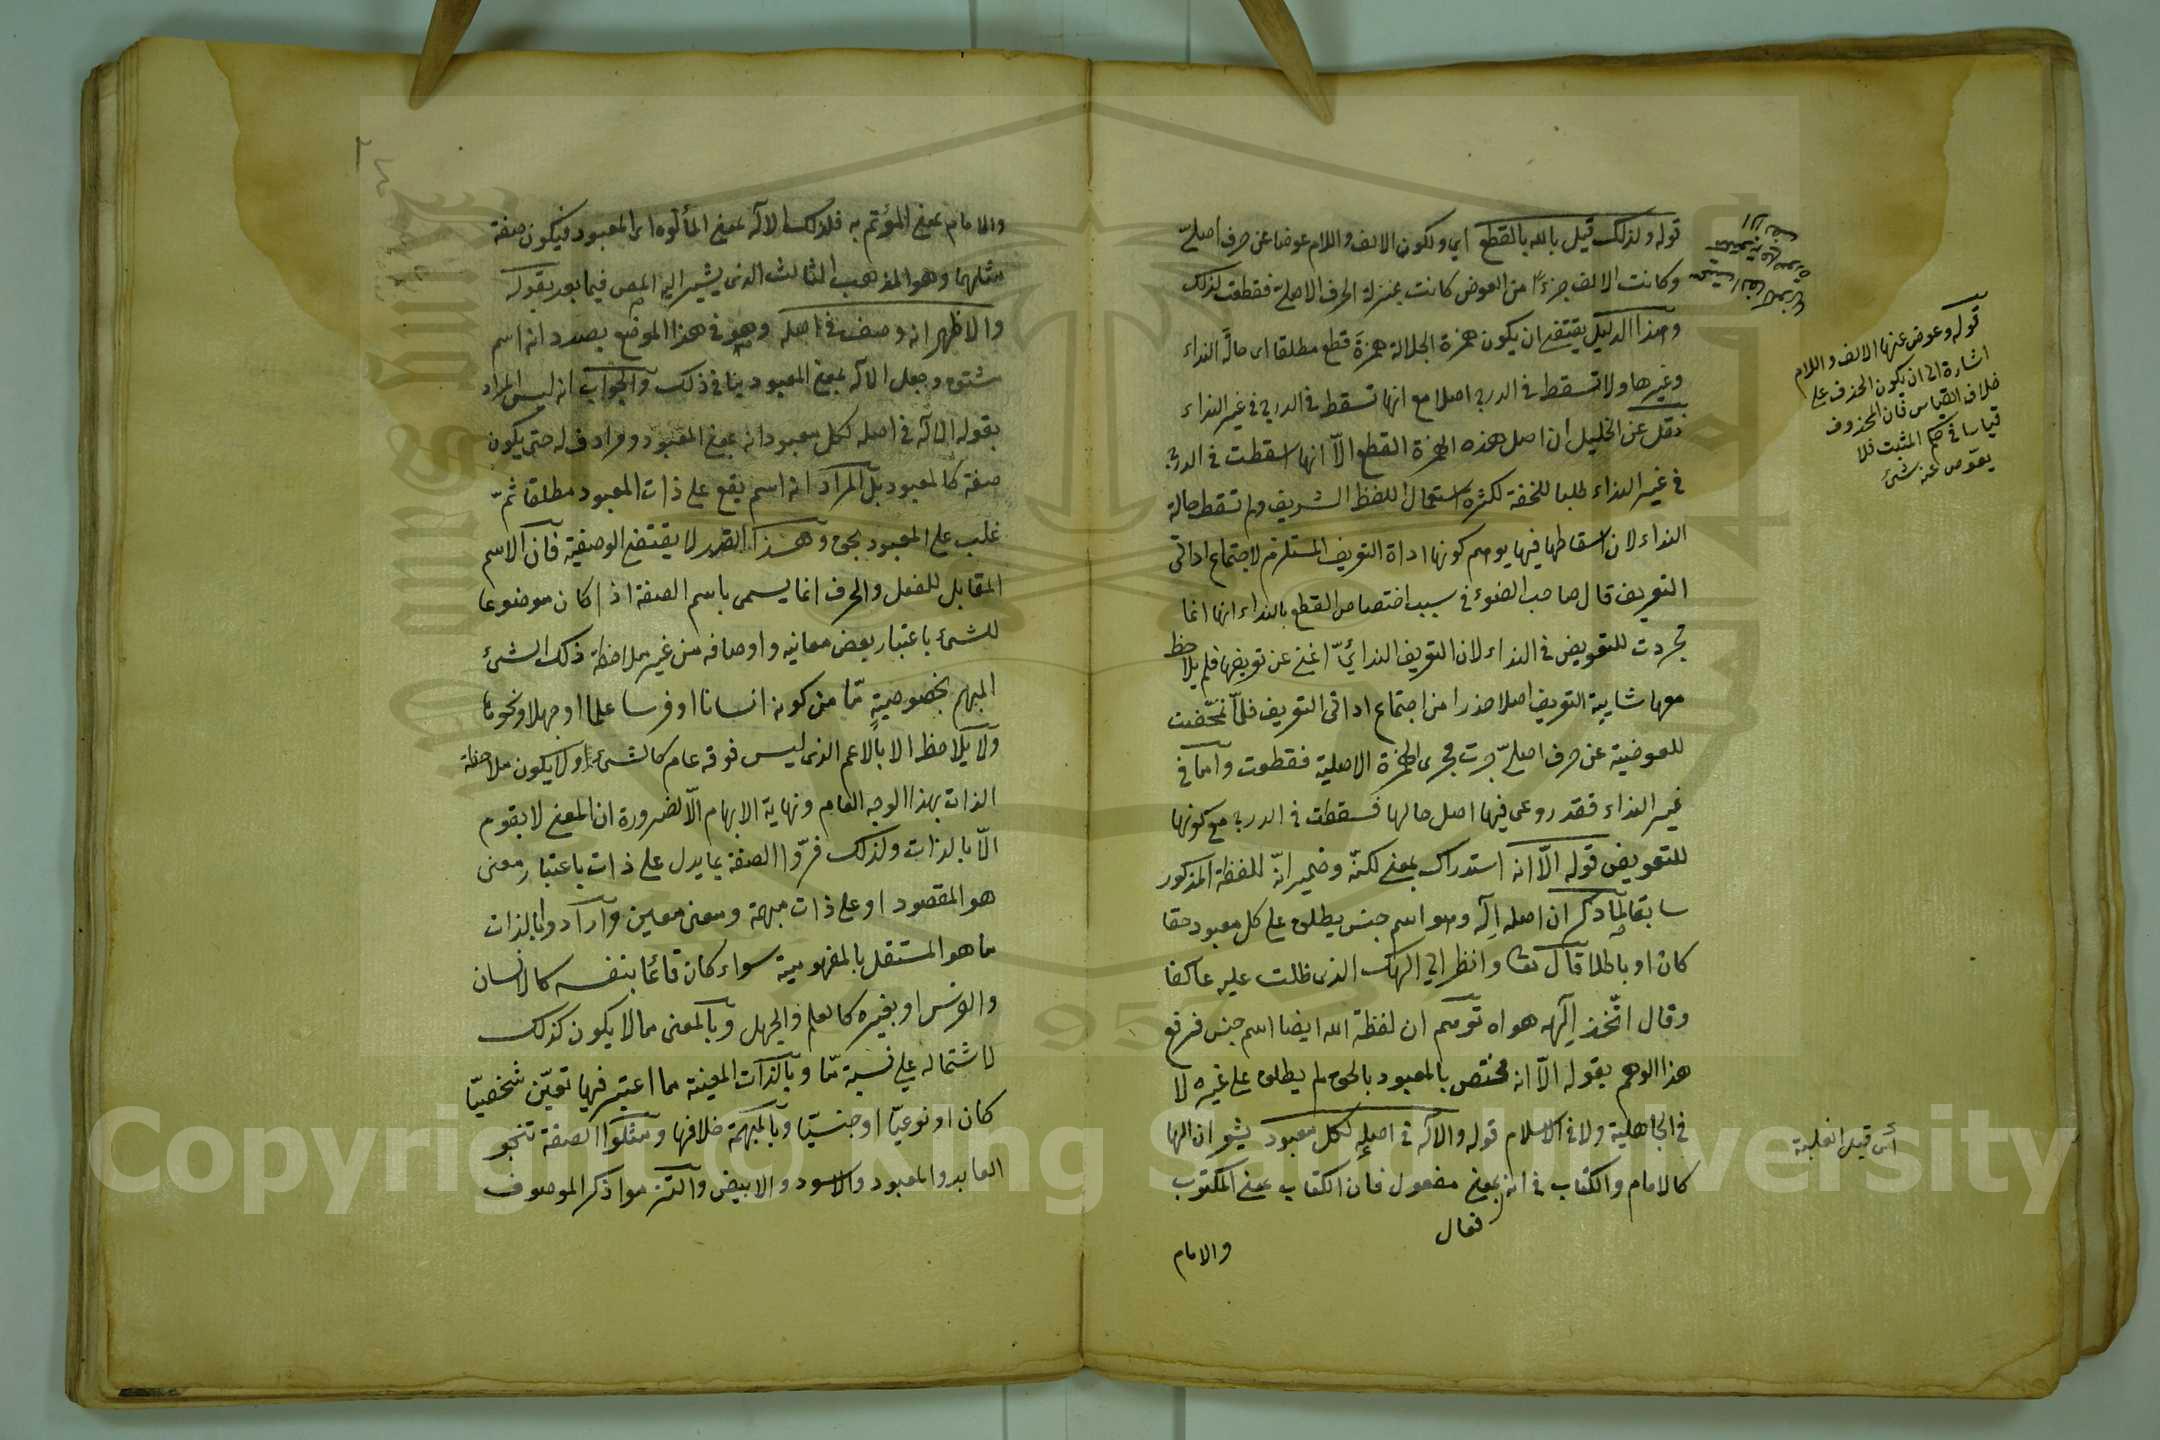 قوله ولذلك قيل يا الله بالقطع اي ولكون الالف واللام عوضا عن حرف اصليّ
وكانت الالف جزءا من العوض كانت بمنزلة الحرف الاصلية فقطعت لذلك
وهذا الدليل يقتضي ان يكون همزة الجلالة همزة قطع مطلقا اى حالة النداء
وغيرها ولا تسقط في الدرج اصلا مع انها تسقط في الدرج في غير النداء
نقل عن الخليل ان اصل هذه الهمزة القطع الّا انها اسقطت في الدرج
في غير النداء طلبا للخفة لكثرة استعمال اللفظ الشريف ولم تسقط حالة
النداء لان اسقاطها فيها يوهم كونها اداة التعريف المستلزم لاجتماع اداتي
التعريف قال صاحب الضوء في سبب اختصاص القطع بالنداء انها انما
تجردت للتعويض في النداء لان التعريف الندائيّ اغنى عن تعريفها فلم يلاحظ
معها شايبة التعريف اصلا حذرا من اجتماع اداتى التعريف فلمّا تمحّضت
للعوضية عن حرف اصليّ جرت مجرى الهمزة الاصلية فقطعت وأما في
غير النداء فقد روعى فيها اصل حالها فسقطت في الدرج مع كونها
للتعويض قوله الّا انه استدراك بمعنى لكنّه وضمير انّه للفظة المذكور
سابقا لمّا ذكر ان اصله اله وهو اسم جنس يطلق على كل معبود حقا
كان او باطلا قال تعا وانظر الى الهك الذى ظلت عليه عاكفا
وقال اتّخذ الهه هواه توهم ان لفظة الله ايضا اسم جنس فرفع
هذا الوهم بقوله الّا انه مختص بالمعبود بالحق لم يطلق على غيره لا
في الجاهلية ولا في الاسلام قوله والاله في اصله لكل معبود يشعر ان الها
كالامام والكتاب في انه بمعنى مفعول فان الكتاب بمعنى المكتوب
فعال
والامام
قوله وعوض عنها الالف واللام
اشارة الى ان يكون الحذف على
خلاف القياس فان المحذوف
قياسا في حكم المثبت فلا
يعوّض عنه شئ
اى قبل الغلبة
والامام بمعنى المؤتم به فلذلك الاله بمعنى المألوه اى المعبود فيكون صفة
مثلهما وهو المذهب الثالث الذى يشير اليه المص فيما بعد بقوله
والاظهر انه وصف في اصله وهو في هذا الموضع بصدد انه اسم
مشتق وجعل الاله بمعنى المعبود ينافى ذلك والجواب انه ليس المراد
بقوله الاله في اصله لكل معبود انه بمعنى المعبود ومرادف له حتى يكون
صفة كالمعبود بل المراد انه اسم يقع على ذات المعبود مطلقا ثمّ
غلب على المعبود بحق وهذا القدر لا يقتضي الوصفية فان الاسم
المقابل للفعل والحرف انما يسمى باسم الصفة اذا كان موضوعا
للشئ باعتبار بعض معانيه واوصافه من غير ملاحظة ذلك الشئ
المبهم بخصوصية مّا من كونه انسانا او فرسا علما او جهلا ونحوها
ولا يلاحظ الا بالاعم الذى ليس فوقه عام كالشئ اولا يكون ملاحظة
الذات بهذا الوجه العام ونهاية الابهام الّا لضرورة ان المعنى لا يقوم
الّا بالذات ولذلك فسّروا الصفة بما يدل على ذات باعتبار معنى
هو المقصود او على ذات مبهمة ومعنى معين وأرادوا بالذات
ما هو المستقل بالمفهومية سواء كان قائما بنفسه كالانسان
والفرس او بغيره كالعلم والجهل وبالمعنى ما لا يكون كذلك
لاشتماله على نسبة مّا وبالذات المعينة ما اعتبر فيها تعيّن شخصيّا
كان او نوعيّا او جنسيّا وبالمبهمة خلافها ومثلوا الصفة بنحو
العابد والمعبود والاسود والابيض والتزموا ذكر الموصوف
Copyright © King Saud University
1957